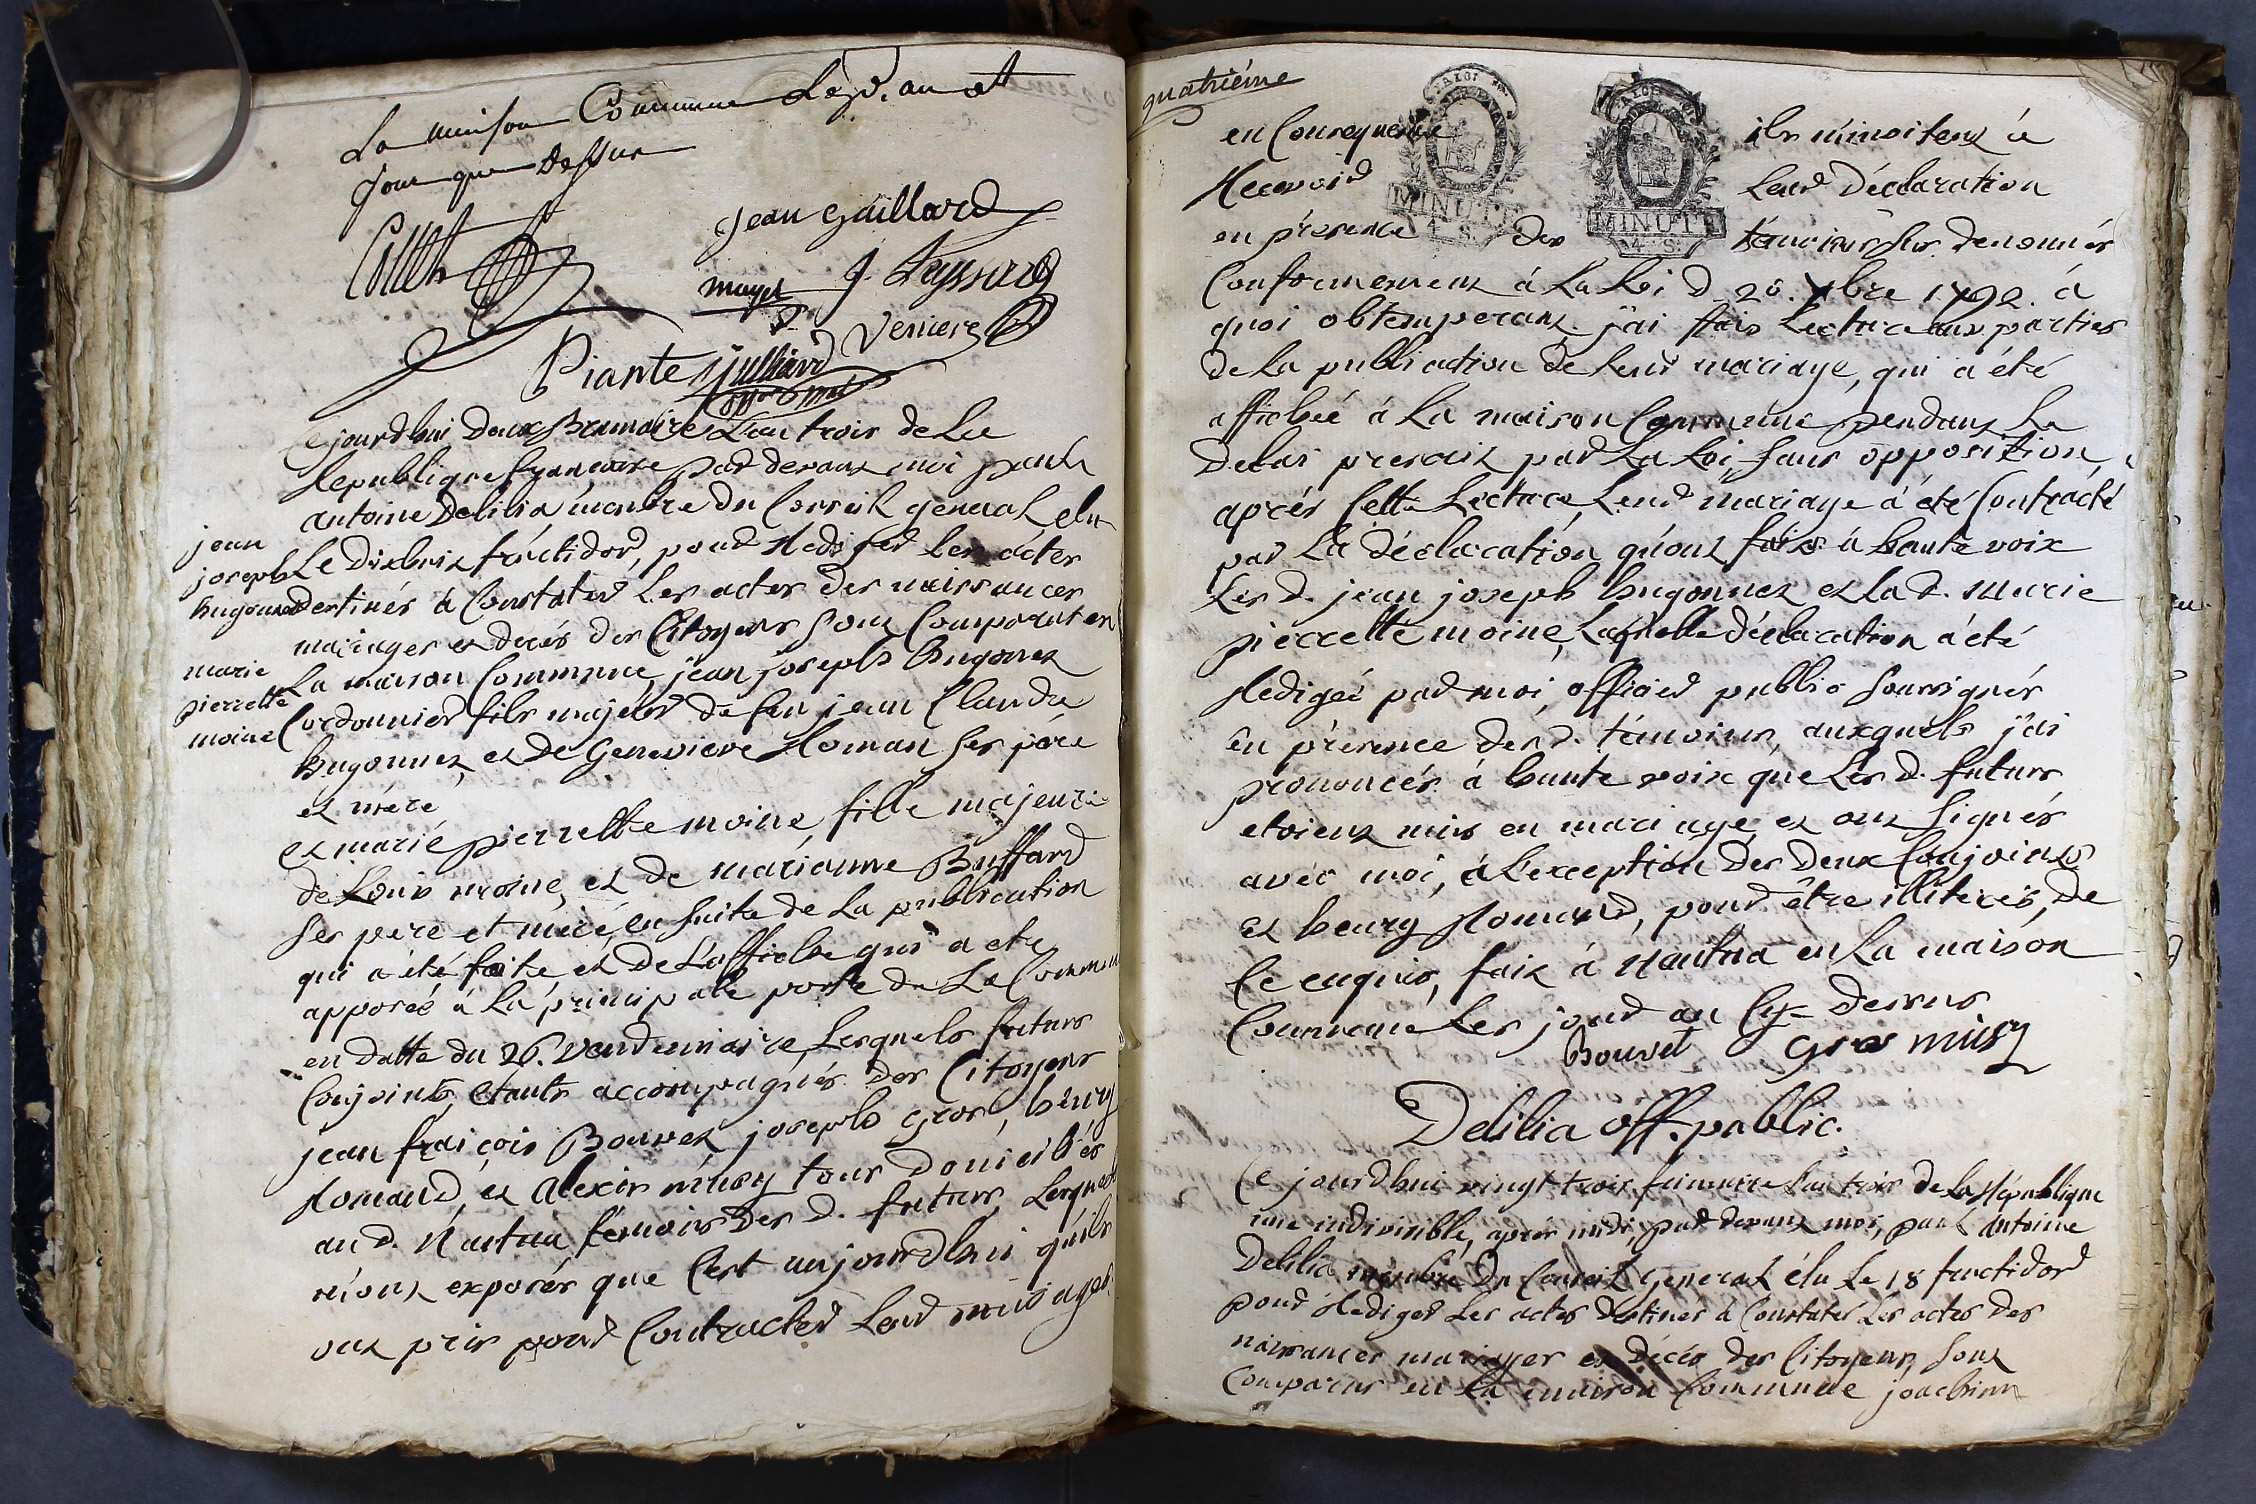 La maison Commune Les d. an et
Jour que Dessus
Jean Gaillard
J. Teyssard
mayet
Veniere
Piante Julliard
offer. public
Cejourdhui Deux Brumaire L'an trois de La
Republique francoise par devant moi paul
antoine Delilia membre du Conseil general, elu
Le dixhuit fructidor, pour Rediger Les actes
destinés à Constater Les actes des naissances
mariages et decés des Citoyens sont Comparut en
La maison Commune, jean joseph hugonnet
Cordonnier fils majeur de feu jean Claude
hugonnet, et de Genevieve Roman ses père
et mère
et marie pierrette moine, fille majeure
de Louis moine, et de marianne Buffard
ses pere et mere, en suite de La publication
qui a été faite et de L'affiche qui a ete
apposée à La principale porte de La Commune
en datte du 26. vendemiaire, Lesquels futurs
Conjoints, etants accompagnés des Citoyens
jean françois Bouvet joseph Gros, henry
Romand, et Alexis musy tous domiciliés
au d. Nantua témoins des d. futurs, Lesquels
m'ont exposés que C'est aujourdhui qu'ils
ont pris pour Contracter Leur mariage,
jean
joseph
hugonnet
marie
pierrette
moine
quatrième
en Consequence ils m'invitent à
Recevoir Leur Déclaration
en présence des témoins sus denommés
MINUTE
4. S.
MINUTE
4. S.
Conformement à La Loi d. 20. 7bre 1792. à
quoi obtemperant, j'ai fait Lecture aux parties
de La publication de Leur mariage, qui a été
affichée à La maison Commune pendant Le
Delai prescrit par La Loi, sans opposition,
après Cette Lecture Leur mariage à été Contracté
par La déclaration qu'ont faits à haute voix
Les d. jean joseph hugonnet et La d. marie
pierrette moine, Laquelle déclaration à été
Redigée par moi, officier public soussignés
en présence des d. témoins, auxquels j'ai
prononcés à haute voix que Les d. futurs
etoient unis en mariage, et ont signés
avec moi, à L'exception des deux Conjoints
et henry Romand, pour être illiterés, de
Ce enquis, fait à Nantua en La maison
Commune Les jour an Cy-dessus
Bouvet Gros musy
Delilia off. public.
Cejourdhui vingt trois frimaire L'an trois de La République
une indivisible, après midi, par devant moi, paul Antoine
Delilia membre Du Conseil General élu Le 18 fructidor
pour Rediger Les actes destinés à Constater Les actes des
naissances mariages et décés des Citoyens, sont
Comparus en La maison Commune joachim